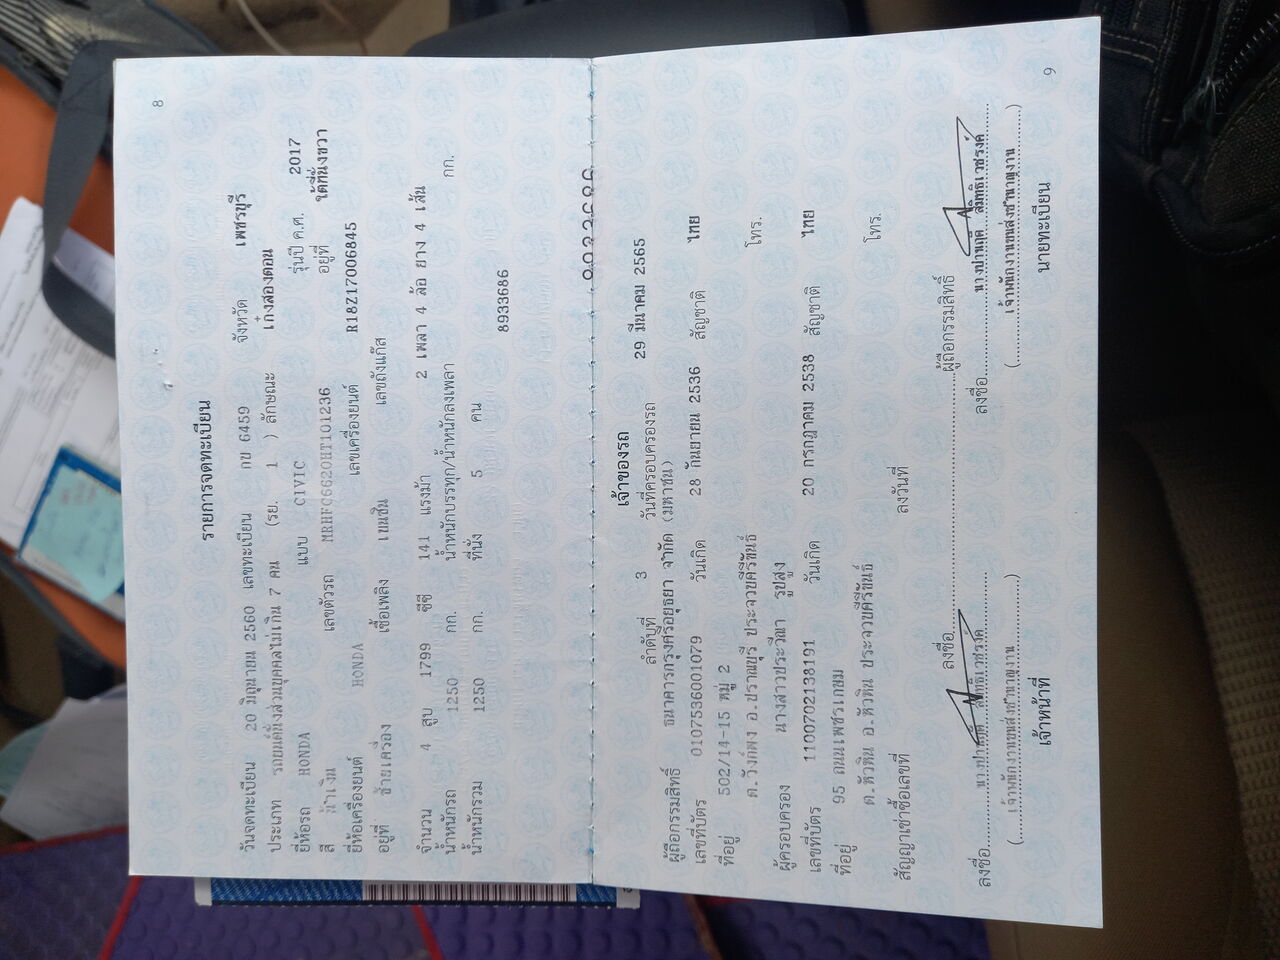 8
รายการจดทะเบียน
วันจดทะเบียน 20 มิถุนายน 2560 เลขทะเบียน กบ 6459 จังหวัด เพชรบุรี
ประเภท รถยนต์นั่งส่วนบุคคลไม่เกิน 7 คน (รย. 1 ) ลักษณะ เก๋งสองตอน
ยี่ห้อรถ HONDA แบบ CIVIC รุ่นปี ค.ศ. 2017
สี น้ำเงิน เลขตัวรถ MRHFC6620HT101236 อยู่ที่ ใต้ที่นั่งขวา
ยี่ห้อเครื่องยนต์ HONDA เลขเครื่องยนต์ R18Z17006845
อยู่ที่ ซ้ายเครื่อง เชื้อเพลิง เบนซิน เลขถังแก๊ส
จำนวน 4 สูบ 1799 ซีซี 141 แรงม้า 2 เพลา 4 ล้อ ยาง 4 เส้น
น้ำหนักรถ 1250 กก. น้ำหนักบรรทุก/น้ำหนักลงเพลา กก.
น้ำหนักรวม 1250 กก. ที่นั่ง 5 คน
8933686
เจ้าของรถ
ลำดับที่ 3 วันที่ครอบครองรถ 29 มีนาคม 2565
ผู้ถือกรรมสิทธิ์ ธนาคารกรุงศรีอยุธยา จำกัด (มหาชน)
เลขที่บัตร 0107536001079 วันเกิด 28 กันยายน 2536 สัญชาติ ไทย
ที่อยู่ 502/14-15 หมู่ 2 โทร.
ต.วังก์พง อ.ปราณบุรี ประจวบคีรีขันธ์
ผู้ครอบครอง นางสาวประวีณา รูปสูง
เลขที่บัตร 1100702138191 วันเกิด 20 กรกฎาคม 2538 สัญชาติ ไทย
ที่อยู่ 95 ถนนเพชรเกษม โทร.
ต.หัวหิน อ.หัวหิน ประจวบคีรีขันธ์
สัญญาเช่าซื้อเลขที่ ลงวันที่
ลงชื่อ ผู้ถือกรรมสิทธิ์
ลงชื่อ ลงชื่อ
(เจ้าพนักงานขนส่งชำนาญงาน) (เจ้าพนักงานขนส่งชำนาญงาน)
เจ้าหน้าที่ นายทะเบียน
9